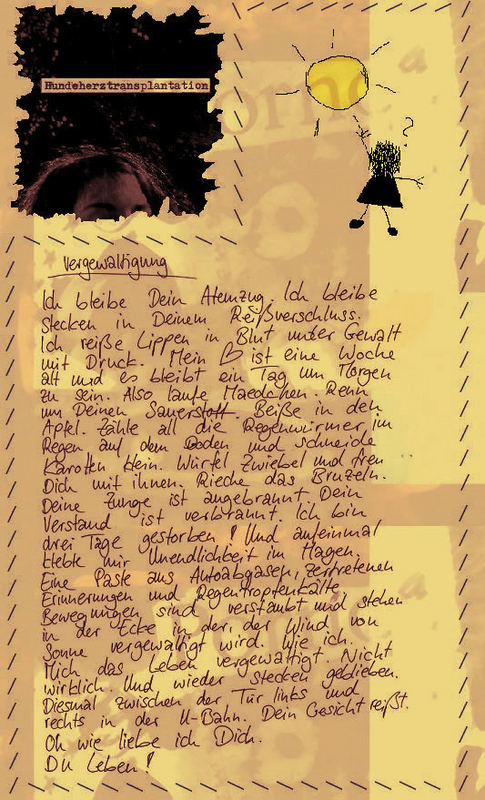 Hundeherztransplantation
?
Vergewaltigung
Ich bleibe Dein Atemzug. Ich bleibe
stecken in Deinem Reißverschluss.
Ich reiße Lippen in Blut unter Gewalt
mit Druck. Mein ♡ ist eine Woche
alt und es bleibt ein Tag um Morgen
zu sein. Also laufe Maedchen. Renn
um Deinen Sauerstoff. Beiße in den
Apfel. Zähle all die Regenwürmer im
Regen auf dem Boden und schneide
Karotten klein. Würfel Zwiebel und freu
Dich mit ihnen. Rieche das Bruzeln.
Deine Zunge ist angebrannt. Dein
Verstand ist verbrannt. Ich bin
drei Tage gestorben! Und aufeinmal
klebt mir Unendlichkeit im Magen.
Eine Paste aus Autoabgasen, zertretenen
Erinnerungen und Regentropfenkälte.
Bewegungen sind verstaubt und stehen
in der Ecke in der, der Wind von
Sonne vergewaltigt wird. Wie ich.
Mich das Leben vergewaltigt. Nicht
wirklich. Und wieder stecken geblieben.
Diesmal zwischen der Tür links und
rechts in der U-Bahn. Dein Gesicht reißt.
Oh wie liebe ich Dich.
Du Leben!